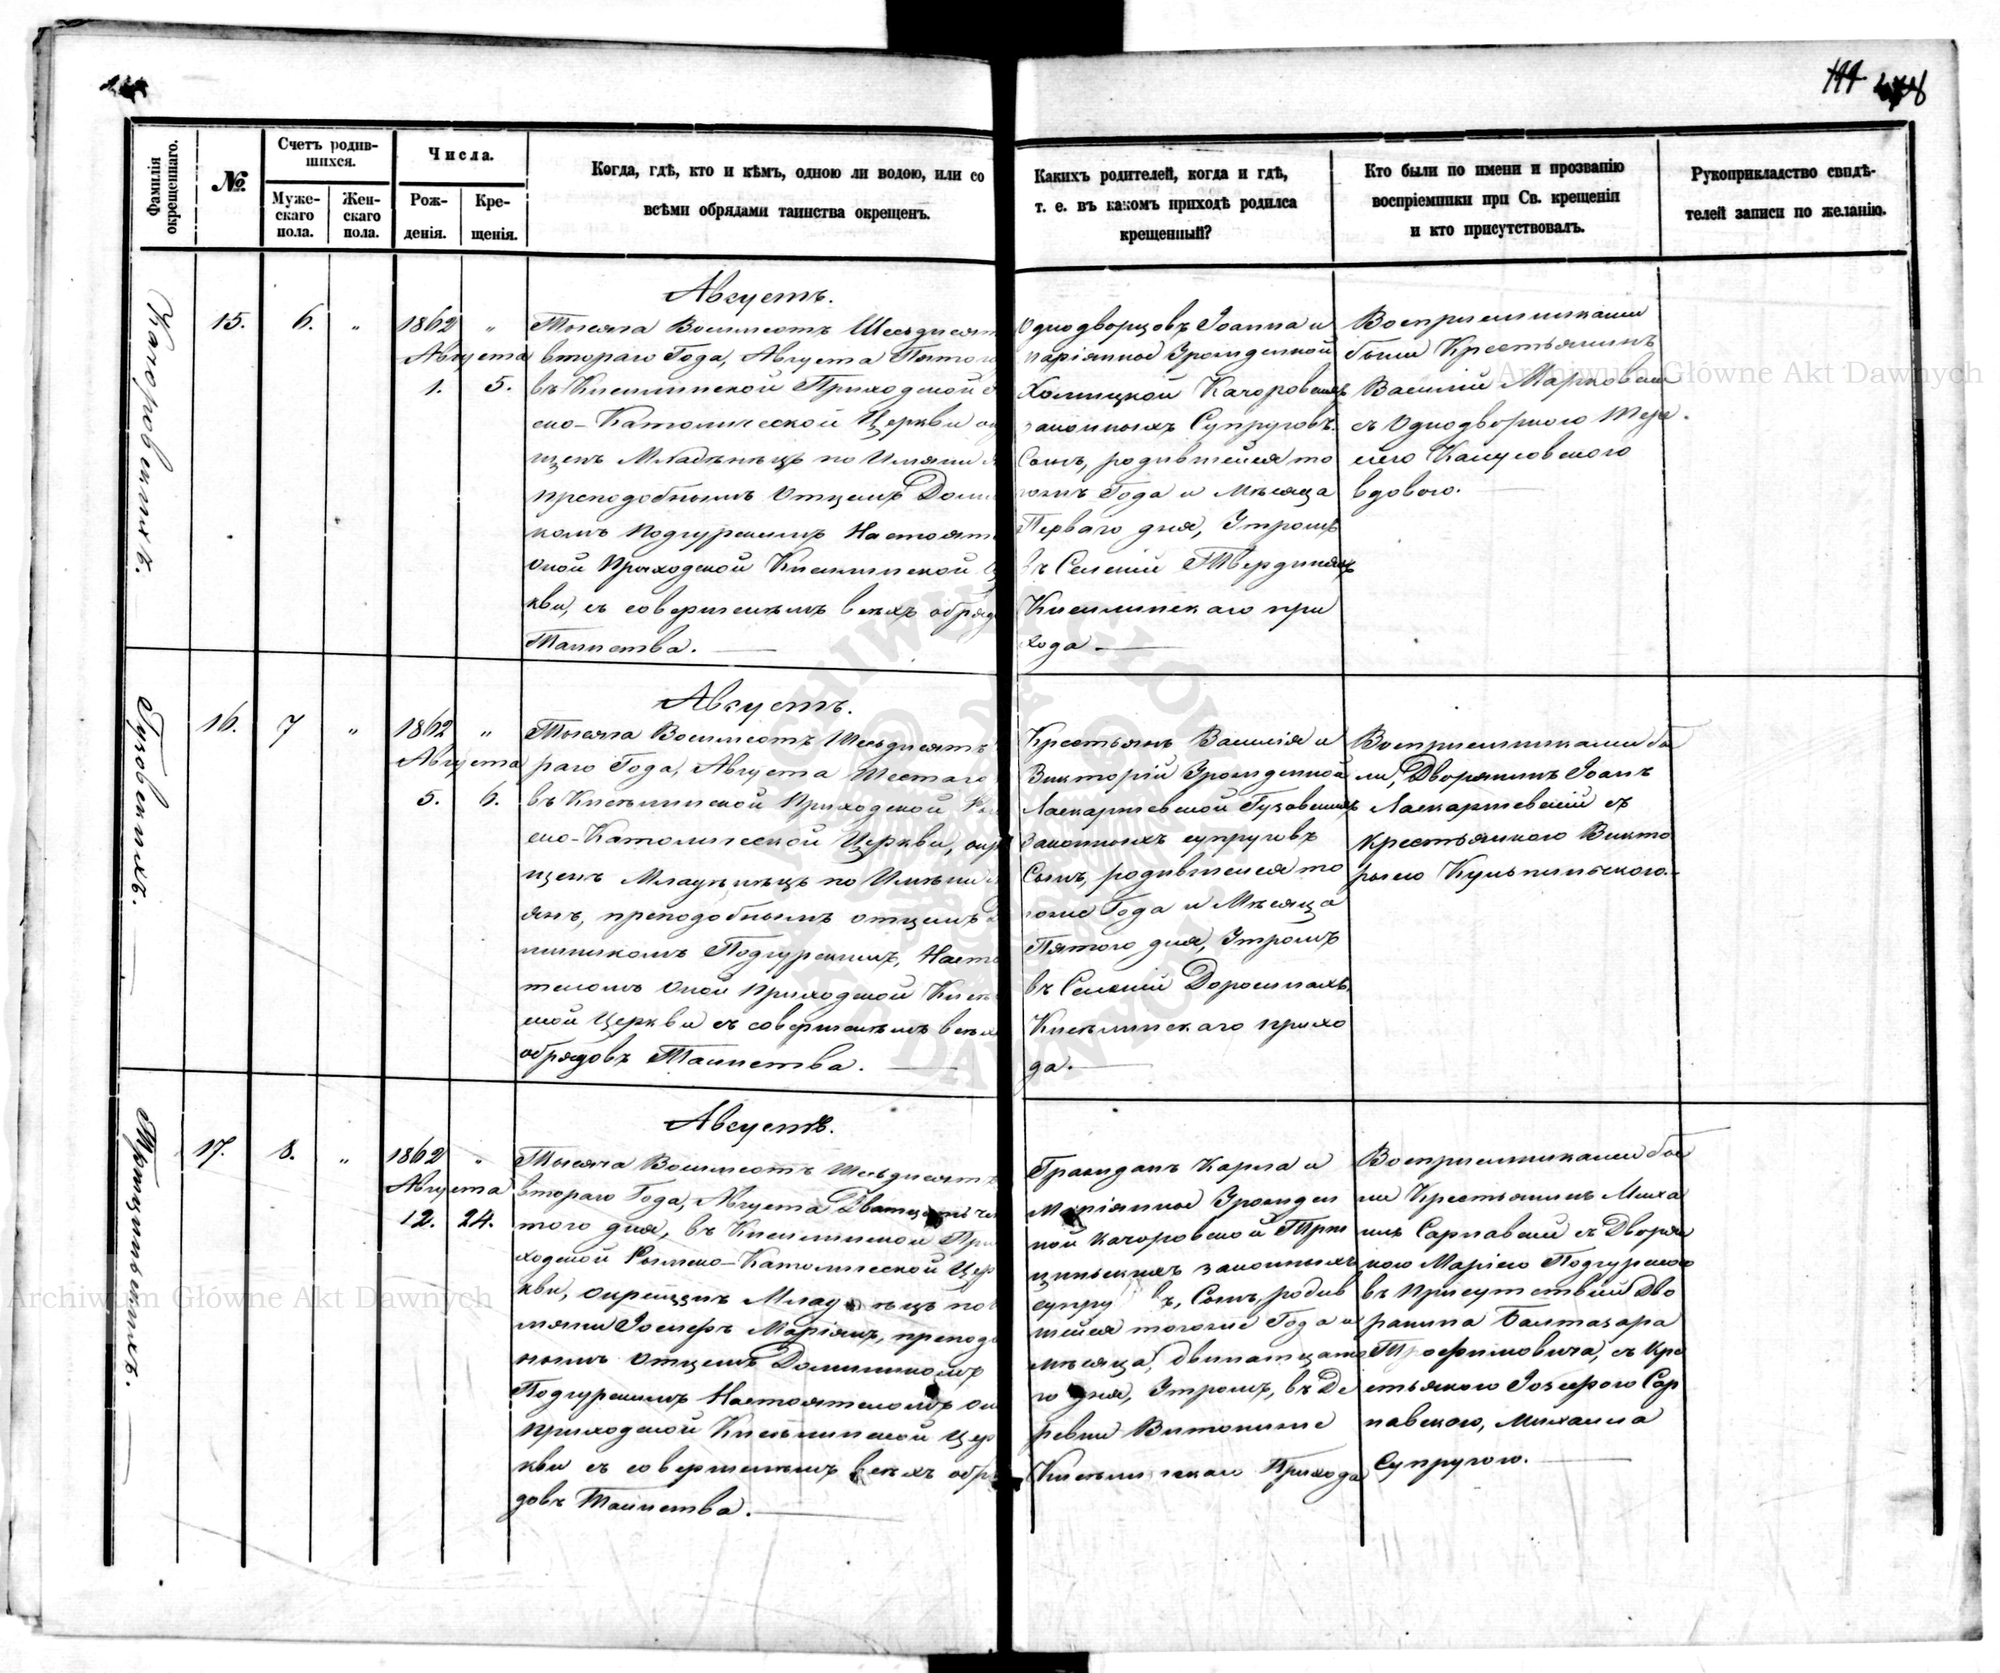 144
Фамилія окрещеннаго.
№
Счетъ родив-
шихся.
Муже-
скаго
пола.
Жен-
скаго
пола.
Числа.
Рож-
денія.
Кре-
щенія.
Когда, гдѣ, кто и кѣмъ, одною ли водою, или со
всѣми обрядами таинства окрещенъ.
Какихъ родителей, когда и гдѣ,
т. е. въ какомъ приходѣ родился
крещенный?
Кто были по имени и прозванію
воспріемники при Св. крещеніи
и кто присутствовалъ.
Рукоприкладство свидѣ-
телей записи по желанію.
Качоровскихъ.
15.
6.
"
1862 "
Августа
1. 5.
Августъ.
Тысяча Восьмсотъ Шесьдисят
втораго Года, Августа Пятого
въ Киселинской Приходской
ско-Католической Церкви
щенъ Младѣнецъ по Имяни
преподобнымъ Отцемъ Доми
комъ Подгурскимъ Настоят
оной Приходской Киселинской
кви, съ совершенѣмъ всѣхъ обряд
Таинства.
Однодворцовъ Іоанна и
Маріянное Урожденной
Холицкой Качоровскихъ
законныхъ Супруговъ.
Сынъ, родившейся то
гожъ Года и Мѣсяца
Перваго дня, Утромъ
въ Селеніи Твердиняхъ
Киселинскаго при
хода.
Восприемниками
были Крестьянинъ
Василій Марковски
съ Однодворкою Тере
сею Капусовскою
вдовою.
Гузовскихъ.
16.
7
"
1862 "
Августа
5. 6.
Августъ.
Тысяча Восьмсотъ Шесьдисятъ
раго Года, Августа Шестаго
въ Киселинской Приходской
ско-Католической Церкви, окр
щенъ Младѣнецъ по Имѣни
янъ, преподобнымъ отцемъ
миникомъ Подгурскимъ, Насто
телемъ оной Приходской Кисе
ской Церкви съ совершенѣмъ всѣх
обрядовъ Таинства.
Крестьянъ Василія и
Викторіи Урожденной
Ласкаржевской Гузовскихъ
законныхъ супруговъ
Сынъ, родившейся то
гоже Года и Мѣсяца
Пятого дня, Утромъ
въ Селеніи Доросиняхъ
Киселинскаго прихо
да.
Восприемниками бы
ли, Дворянинъ Іоанъ
Ласкаржевскій съ
крестьянкою Викто
рыею Кульпинскою.
17.
8.
"
1862 "
Августа
12. 24.
Августъ.
Тысяча Восьмсотъ Шесьдисятъ
втораго Года, Августа Двадцать чет
того дня, въ Киселинской При
ходской Рымско-Католической Цер
кви, окрещенъ Младѣнецъ по
мяни Іосифъ Маріянъ, преподо
нымъ отцемъ Доминикомъ
Подгурскимъ Настоятелемъ он
приходской Киселинской Цер
кви съ совершенѣмъ всѣхъ обр
довъ Таинства.
Гражданъ Карла и
Маріянное Урожден
ной Качоровской Трж
цинскихъ законныхъ
супру въ, Сынъ, родив
шейся тогоже Года и
мѣсяца, двинатцато
го дня, Утромъ, въ Де
ревни Витониже
Киселинскаго Прихода
Восприемниками бы
ли Крестьянинъ Миха
илъ Сарнавски съ Дворян
кою Маріею Подгурскою
въ Присутствіи Дво
ранина Балтазара
Трофимовича, съ Кре
стьянкою Іозефою Сар
навскою, Михаила
Супругою.
Archiwum Główne Akt Dawnych
Archiwum Główne Akt Dawnych